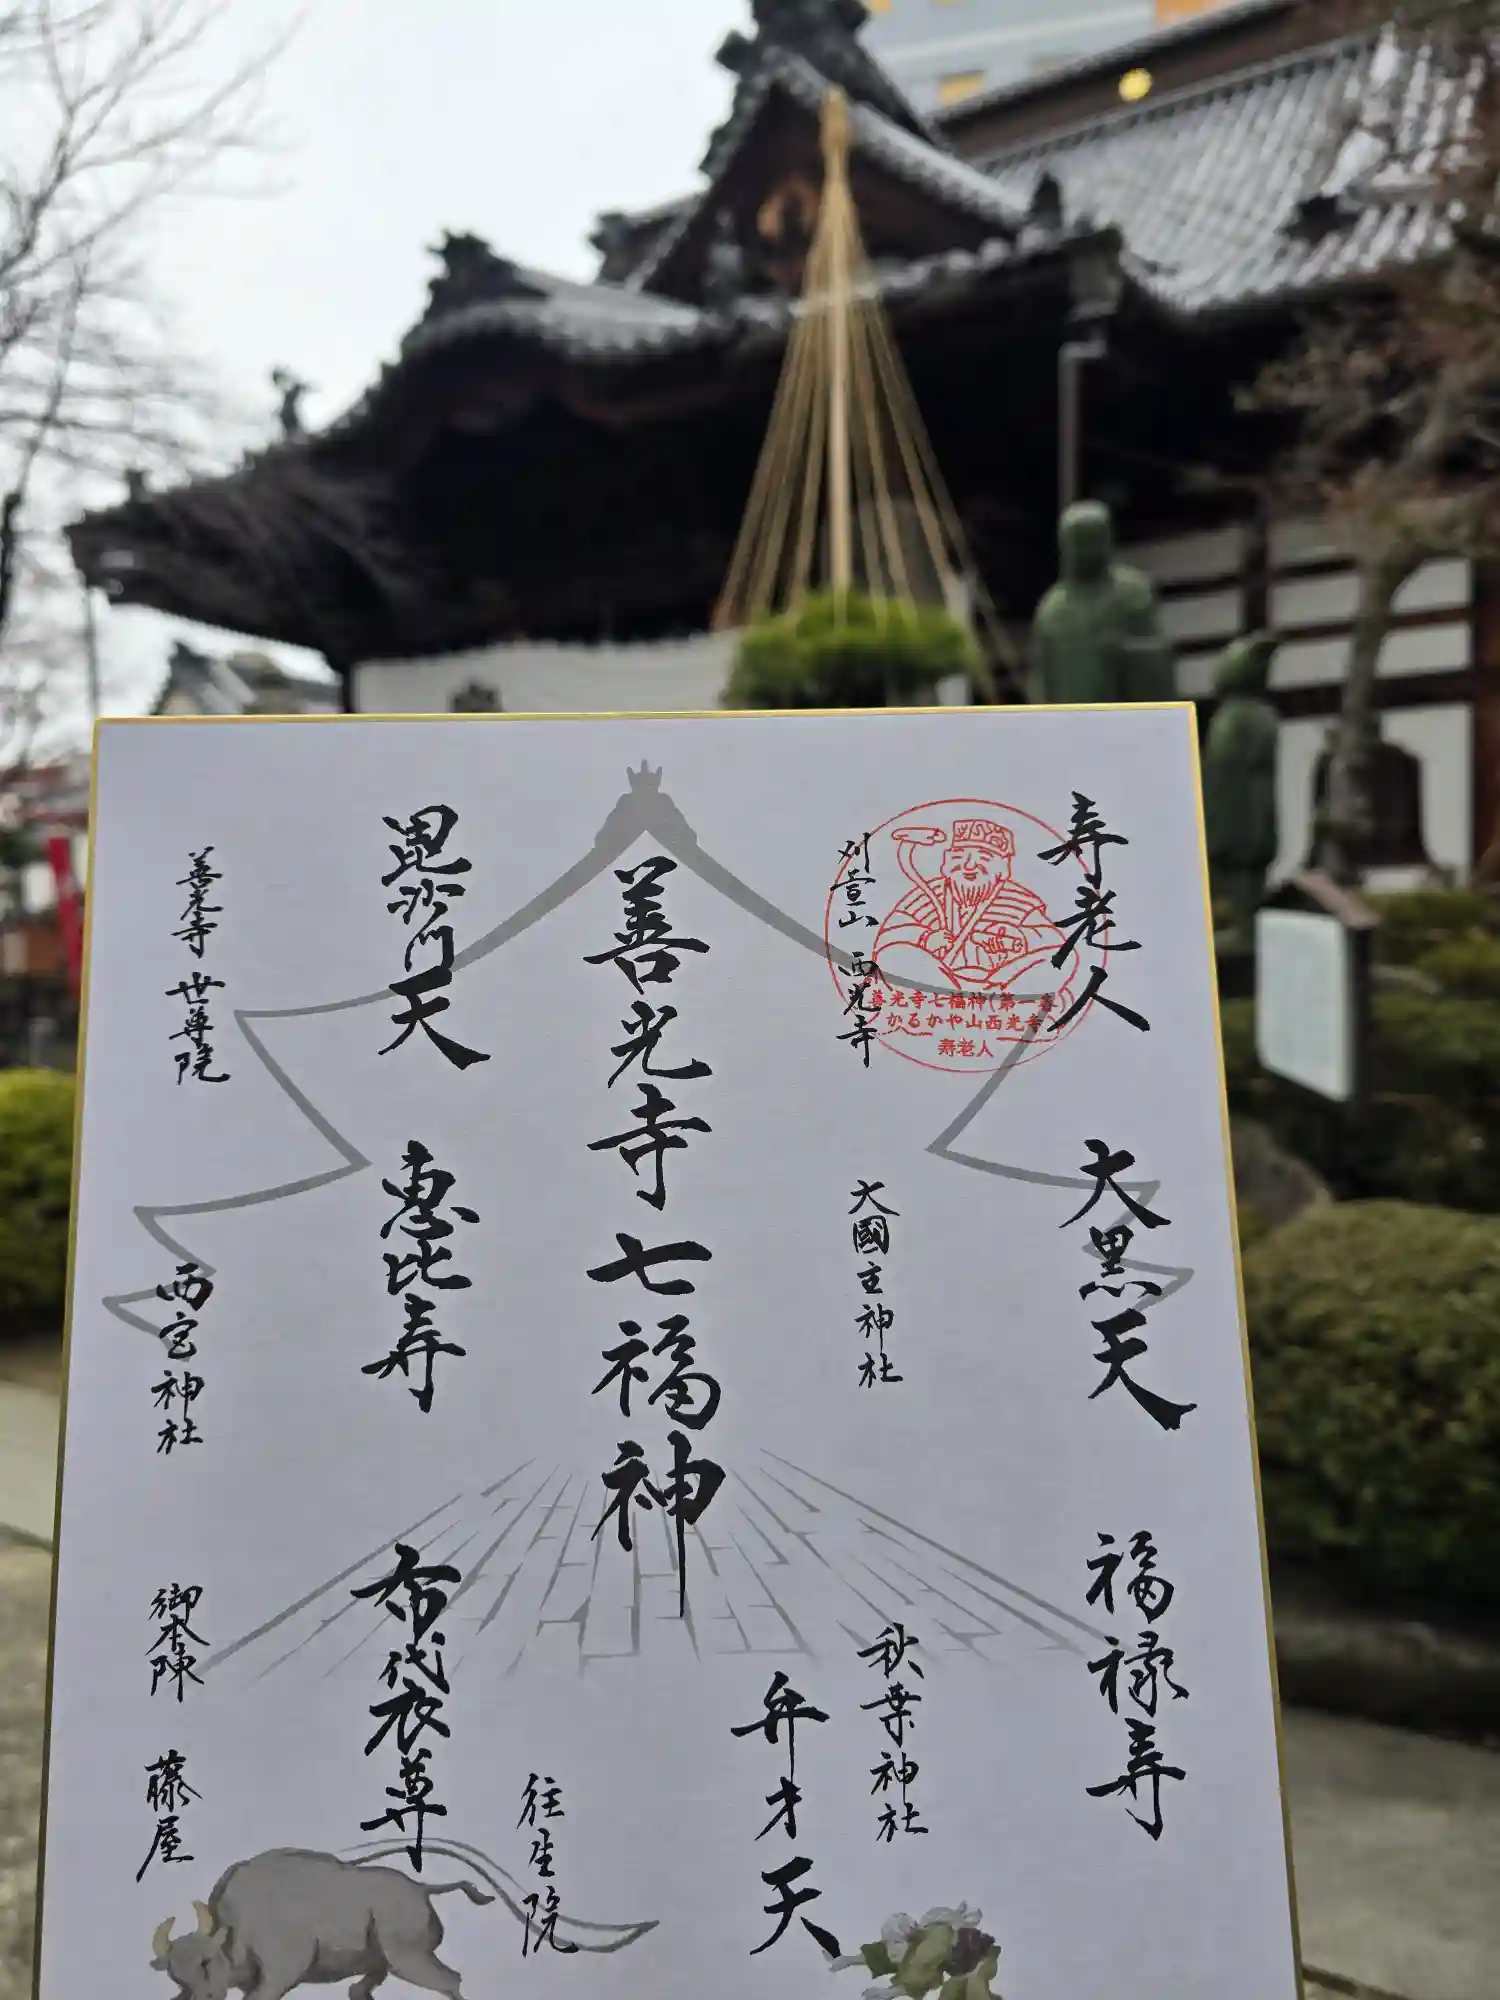 寿老人
刈萱山 西光寺
善光寺七福神(第一番)
かるかや山西光寺
寿老人
大黒天
大國主神社
福禄寿
秋葉神社
弁才天
往生院
善光寺七福神
毘沙門天
善光寺 世尊院
恵比寿
西宮神社
布袋尊
御本陳 藤屋